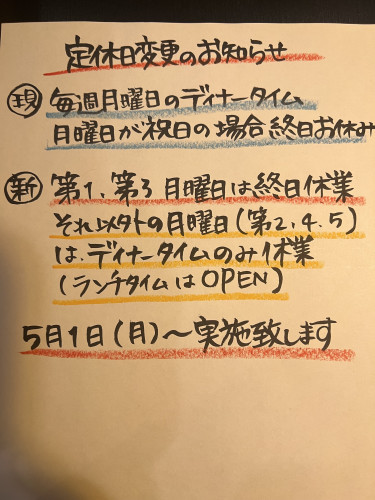 定休日変更のお知らせ
現 毎週月曜日のディナータイム
月曜日が祝日の場合終日お休み
新 第1、第3月曜日は終日休業
それ以外の月曜日(第2.4.5)
は、ディナータイムのみ休業
(ランチタイムはOPEN)
5月1日(月)〜実施致します